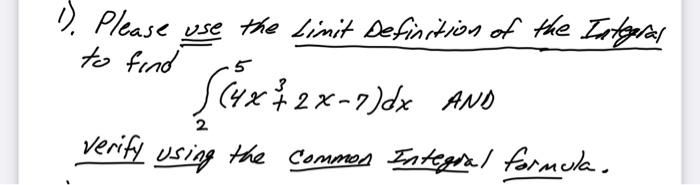 1). Please use the Limit Definition of the Integral
to find
∫₂⁵ (4x³ + 2x - 7)dx AND
verify using the Common Integral formula.